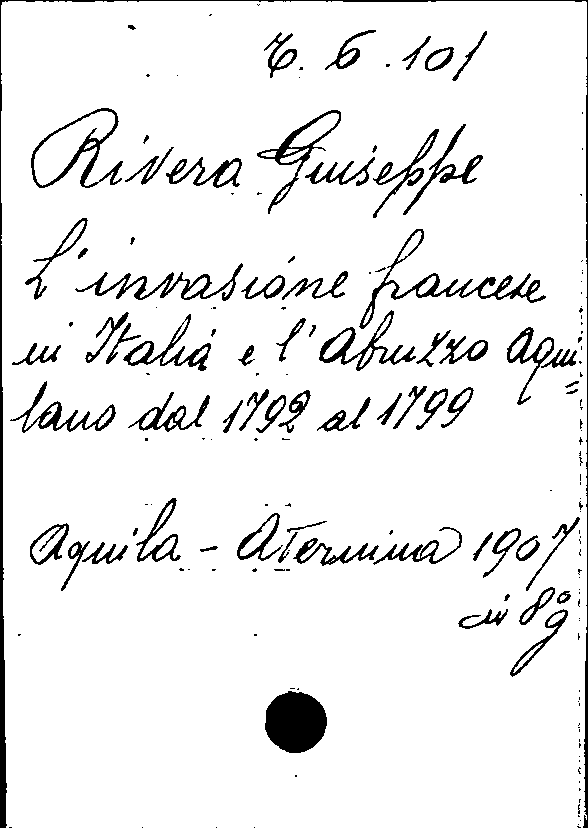 6.101
Rivera Giuseppe
L'invasione francese
in Italia e l'Abruzzo Aqui=
lano dal 1792 al 1799
Aquila - Aternina 1907
in 8º